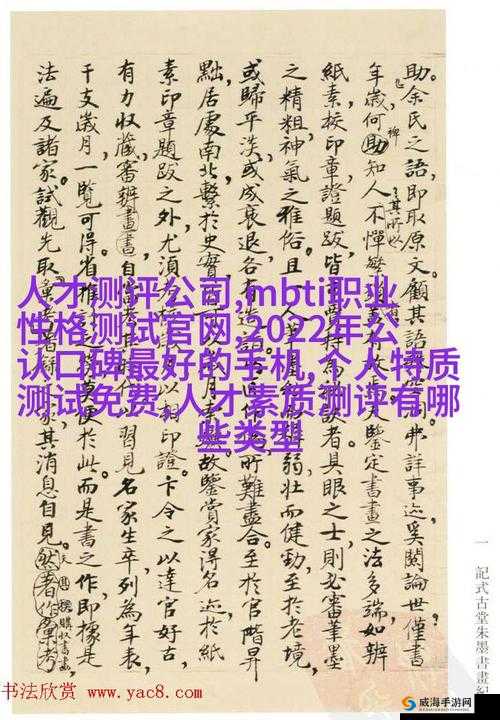 一 記式古堂朱墨書畫紀
助余氏之語，即取原文，顧其語弗詳事迹，奚闕論世，僅書
年歲，何助知人，不憚繁鑒定書畫之法多端，如辨
紙素，校印章，證題跋，皆者，具眼之士，則必審筆墨
之精粗，神氣之雅俗，且一人弱，壯而健勁，至於老境，
或歸平淡，或成衰退，各有所難盡合。至於官階昇
黜，居處南北，繫於史實故鑒賞家得名迹於紙
素印章題跋之外，尤須以印證。卞令之以達官好古，
有力收藏，審辨書畫，自習見名家生卒，列為年表，
干支歲月，一覽可得，省便於此。而是書之作，即據是
法，遍及諸家，試觀先取其消息自見。然著作彙考，
人才测评公司,mbti职业
性格测试官网,2022年公
认口碑最好的手机,个人特质
测试免费,人才素质测评有哪
些类型
书法欣赏 www.yac8.com
威海手游网